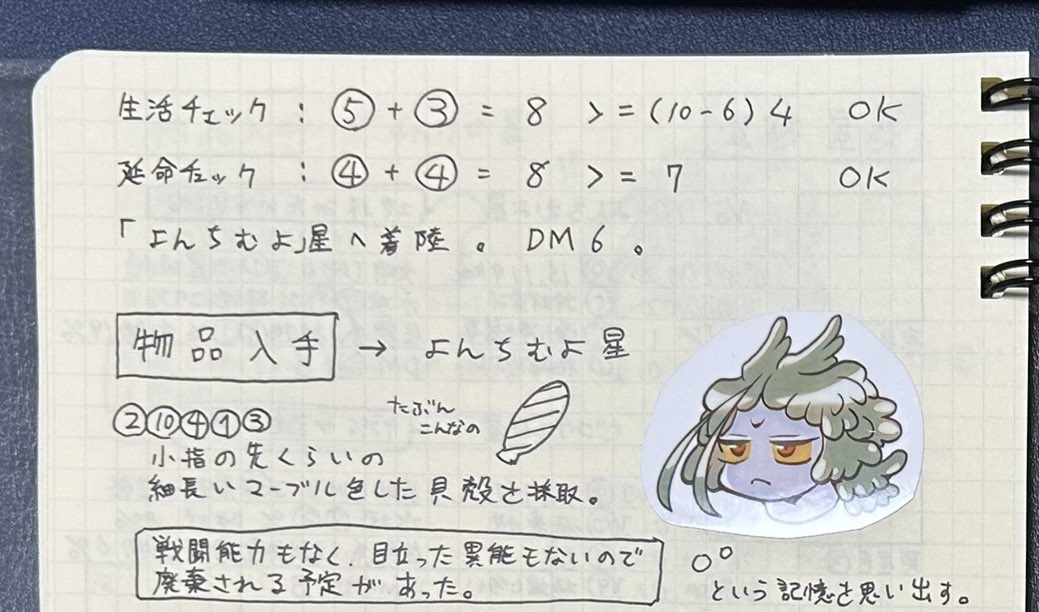 生活チェック : ⑤ + ③ = 8 >= (10-6) 4 OK
延命チェック : ④ + ④ = 8 >= 7 OK
「よんちむよ」星へ着陸。 DM6。
物品入手 → よんちむよ星
②⑩④①③
たぶん
こんなの
小指の先くらいの
細長いマーブル色した貝殻を採取。
戦闘能力もなく、目立った異能もないので
廃棄される予定があった。
という記憶を思い出す。